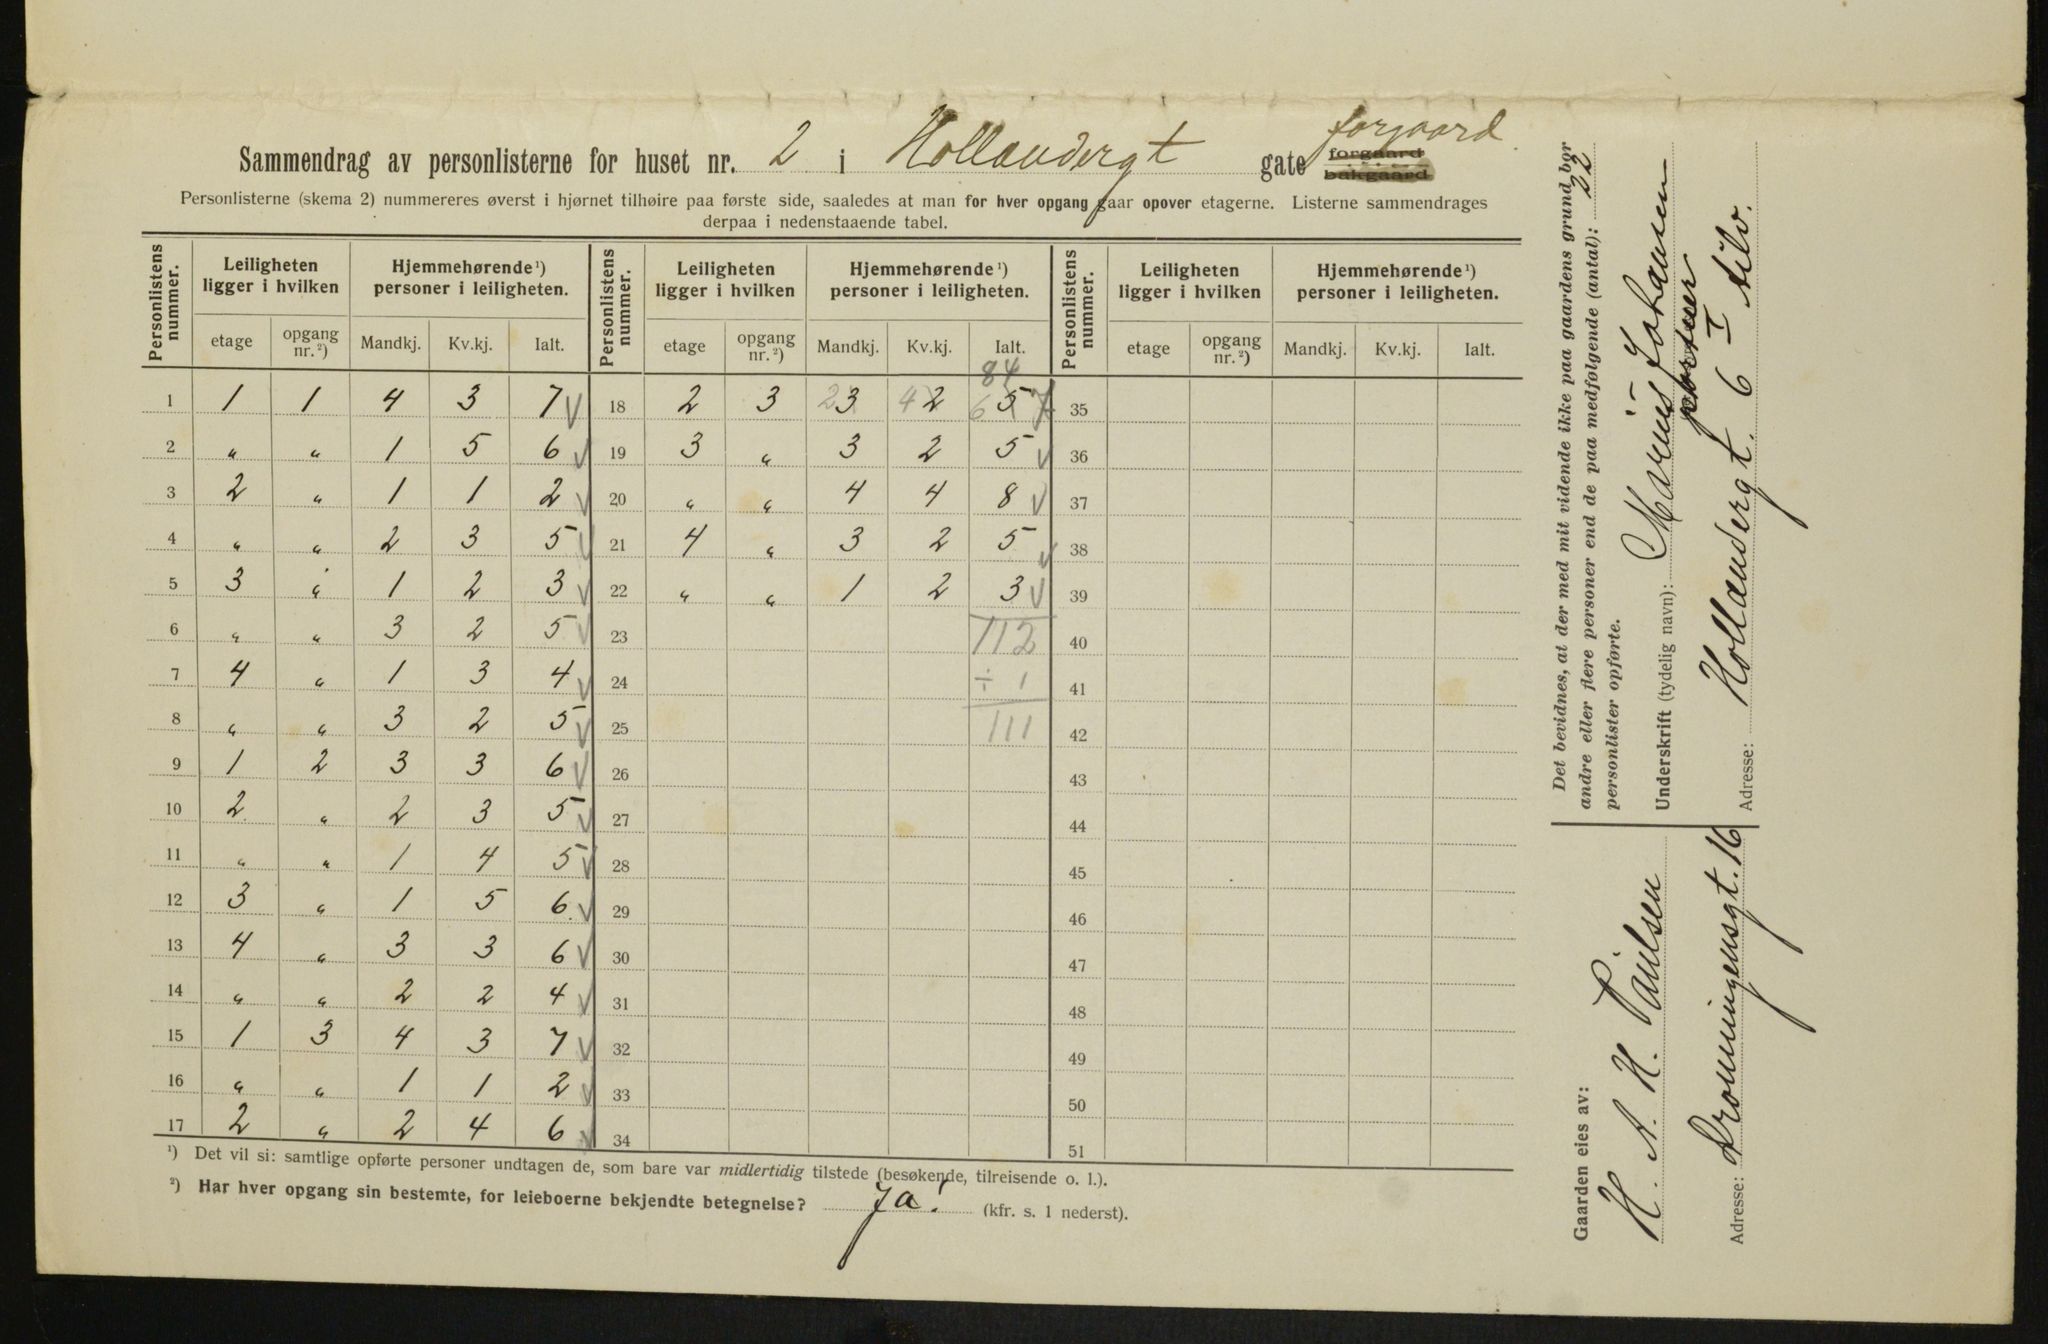 Sammendrag av personlisterne for huset nr. 2 i Hollændergt gate forgaard
forgaard
bakgaard
Personlisterne (skema 2) nummereres øverst i hjørnet tilhøire paa første side, saaledes at man for hver opgang gaar opover etagerne. Listerne sammendrages
derpaa i nedenstaaende tabel.
Personlistens nummer. Leiligheten ligger i hvilken Hjemmehørende ¹) personer i leiligheten. Personlistens nummer. Leiligheten ligger i hvilken Hjemmehørende ¹) personer i leiligheten. Personlistens nummer. Leiligheten ligger i hvilken Hjemmehørende ¹) personer i leiligheten.
etage opgang nr. ²) Mandkj. Kv.kj. Ialt. etage opgang nr. ²) Mandkj. Kv.kj. Ialt. etage opgang nr. ²) Mandkj. Kv.kj. Ialt.
84
1 1 1 4 3 7 √ 18 2 3 2 3 4 2 6 5 7 35
2 " " 1 5 6 √ 19 3 " 3 2 5 √ 36
3 2 " 1 1 2 √ 20 " " 4 4 8 √ 37
4 " " 2 3 5 √ 21 4 " 3 2 5 √ 38
5 3 " 1 2 3 √ 22 " " 1 2 3 √ 39
6 " " 3 2 5 √ 23 112 40
7 4 " 1 3 4 √ 24 ÷ 1 41
8 " " 3 2 5 √ 25 111 42
9 1 2 3 3 6 √ 26 43
10 2 " 2 3 5 √ 27 44
11 " " 1 4 5 √ 28 45
12 3 " 1 5 6 √ 29 46
13 4 " 3 3 6 √ 30 47
14 " " 2 2 4 √ 31 48
15 1 3 4 3 7 √ 32 49
16 " " 1 1 2 √ 33 50
17 2 " 2 4 6 √ 34 51
¹) Det vil si: samtlige opførte personer undtagen de, som bare var midlertidig tilstede (besøkende, tilreisende o. l.).
²) Har hver opgang sin bestemte, for leieboerne bekjendte betegnelse? Ja! (kfr. s. 1 nederst).
Det bevidnes, at der med mit vidende ikke paa gaardens grund bor
andre eller flere personer end de paa medfølgende (antal): 22
personlister opførte.
Underskrift (tydelig navn): Marius Johansen
portner
Adresse: Hollændergt. 6 I
Gaarden eies av:
H. A. H. Paulsen
Adresse: Dronningensgt. 16